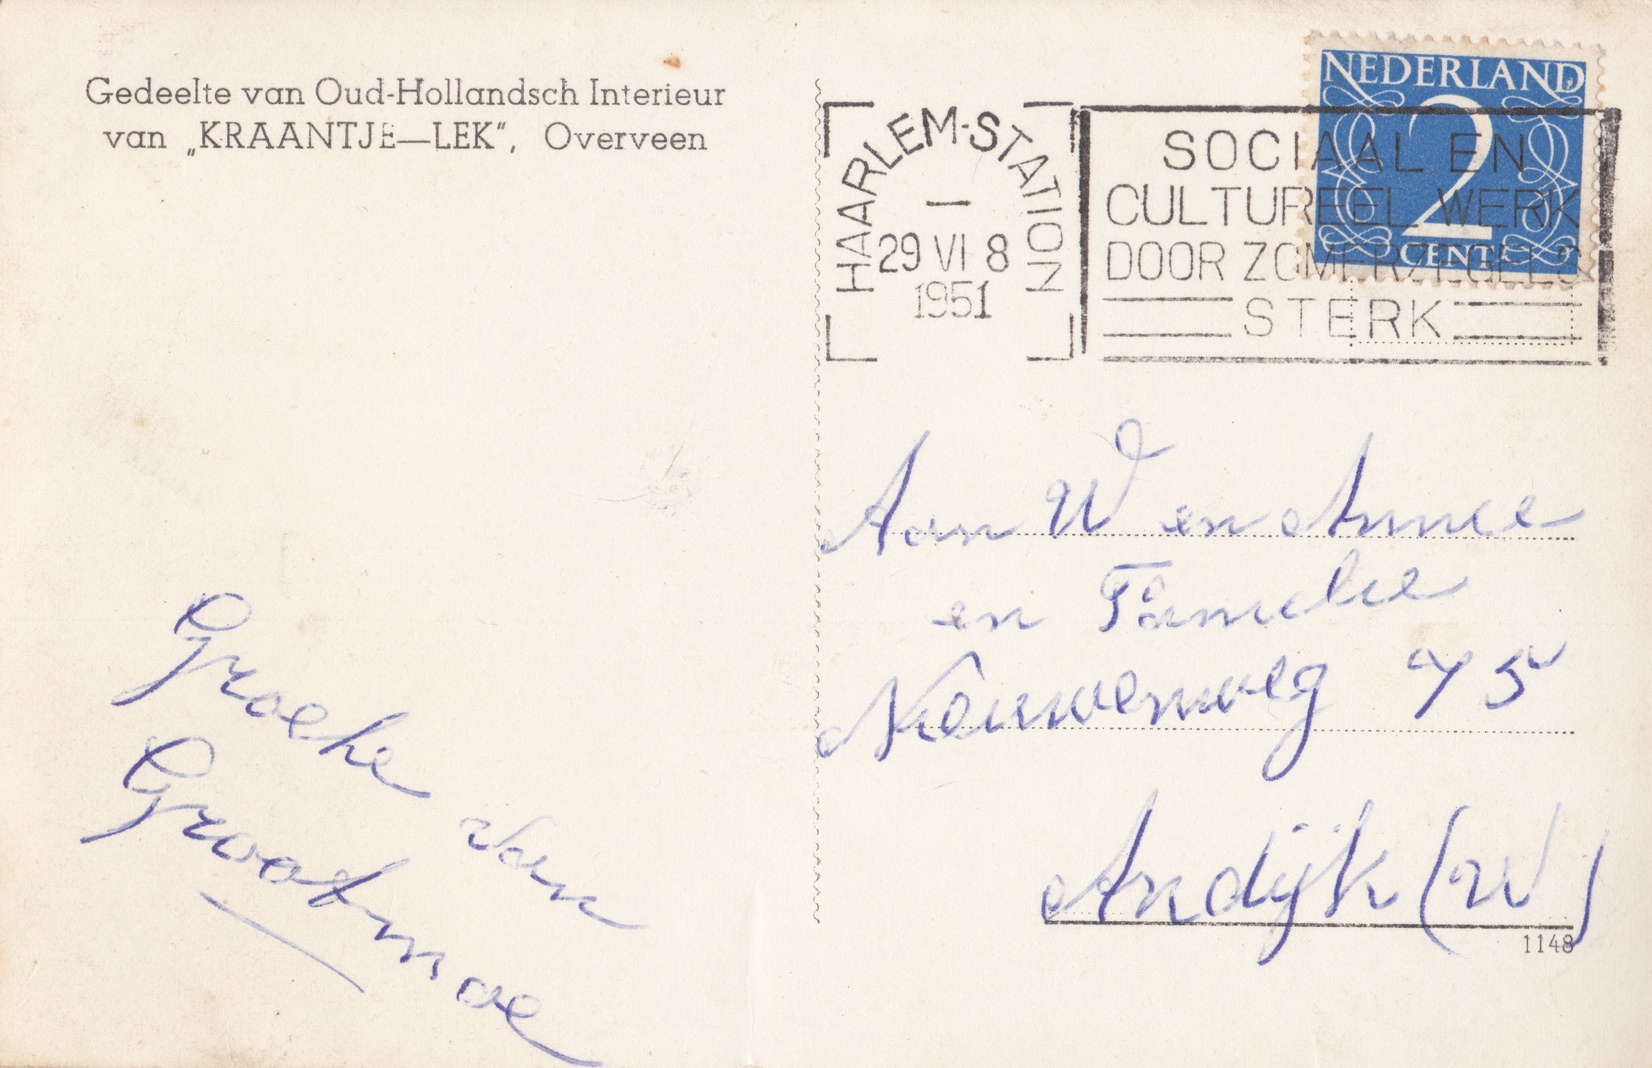 Gedeelte van Oud-Hollandsch Interieur
van „KRAANTJE—LEK”, Overveen
HAARLEM-STATION
29 VI 8
1951
SOCIAAL EN
CULTUREEL WERK
DOOR ZOMERZEGELS
STERK
NEDERLAND
2
CENT
Aan W en Annie
en Familie
Nieuweweg 75
Andijk (W)
1148
Groetje van
Grootmoe